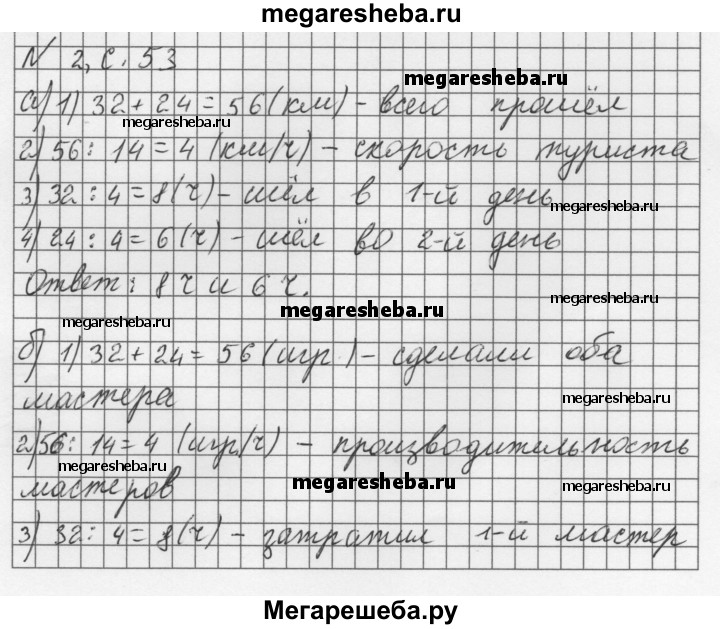 megaresheba.ru
N 2, с. 53
megaresheba.ru
а) 1) 32 + 24 = 56 (км) - всего прошёл
megaresheba.ru
megaresheba.ru
2) 56 : 14 = 4 (км/ч) - скорость туриста
3) 32 : 4 = 8 (ч) - шёл в 1-й день
megaresheba.ru
4) 24 : 4 = 6 (ч) - шёл во 2-й день
Ответ: 8 ч и 6 ч.
megaresheba.ru
megaresheba.ru
megaresheba.ru
б) 1) 32 + 24 = 56 (игр) - сделали оба
мастера
megaresheba.ru
2) 56 : 14 = 4 (игр/ч) - производительность
megaresheba.ru
мастеров
megaresheba.ru
megaresheba.ru
3) 32 : 4 = 8 (ч) - затратил 1-й мастер
Мегарешеба.ру